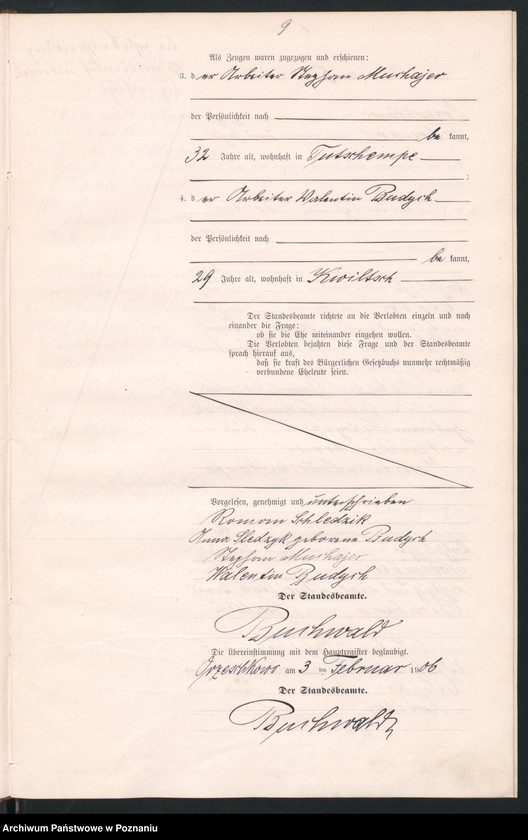 9
Als Zeugen waren zugezogen und erschienen:
3. der Arbeiter Stephan Muchajer
der Persönlichkeit nach
be kannt,
32 Jahre alt, wohnhaft in Tutschempe
;
4. der Arbeiter Valentin Budych
der Persönlichkeit nach
be kannt,
29 Jahre alt, wohnhaft in Kwiltsch
Der Standesbeamte richtete an die Verlobten einzeln und nach
einander die Frage:
ob sie die Ehe miteinander eingehen wollen.
Die Verlobten bejahten diese Frage und der Standesbeamte
sprach hierauf aus,
daß sie kraft des Bürgerlichen Gesetzbuchs nunmehr rechtmäßig
verbundene Eheleute seien.
Vorgelesen, genehmigt und unterschrieben
Roman Schledzik
Anna Sledzyk geborene Budych
Stephan Muchajer
Valentin Budych
Der Standesbeamte.
Buchwald
Die Übereinstimmung mit dem Hauptregister beglaubigt.
Orzeschkowo am 3 ten Februar 1906
Der Standesbeamte.
Buchwald
Archiwum Państwowe w Poznaniu